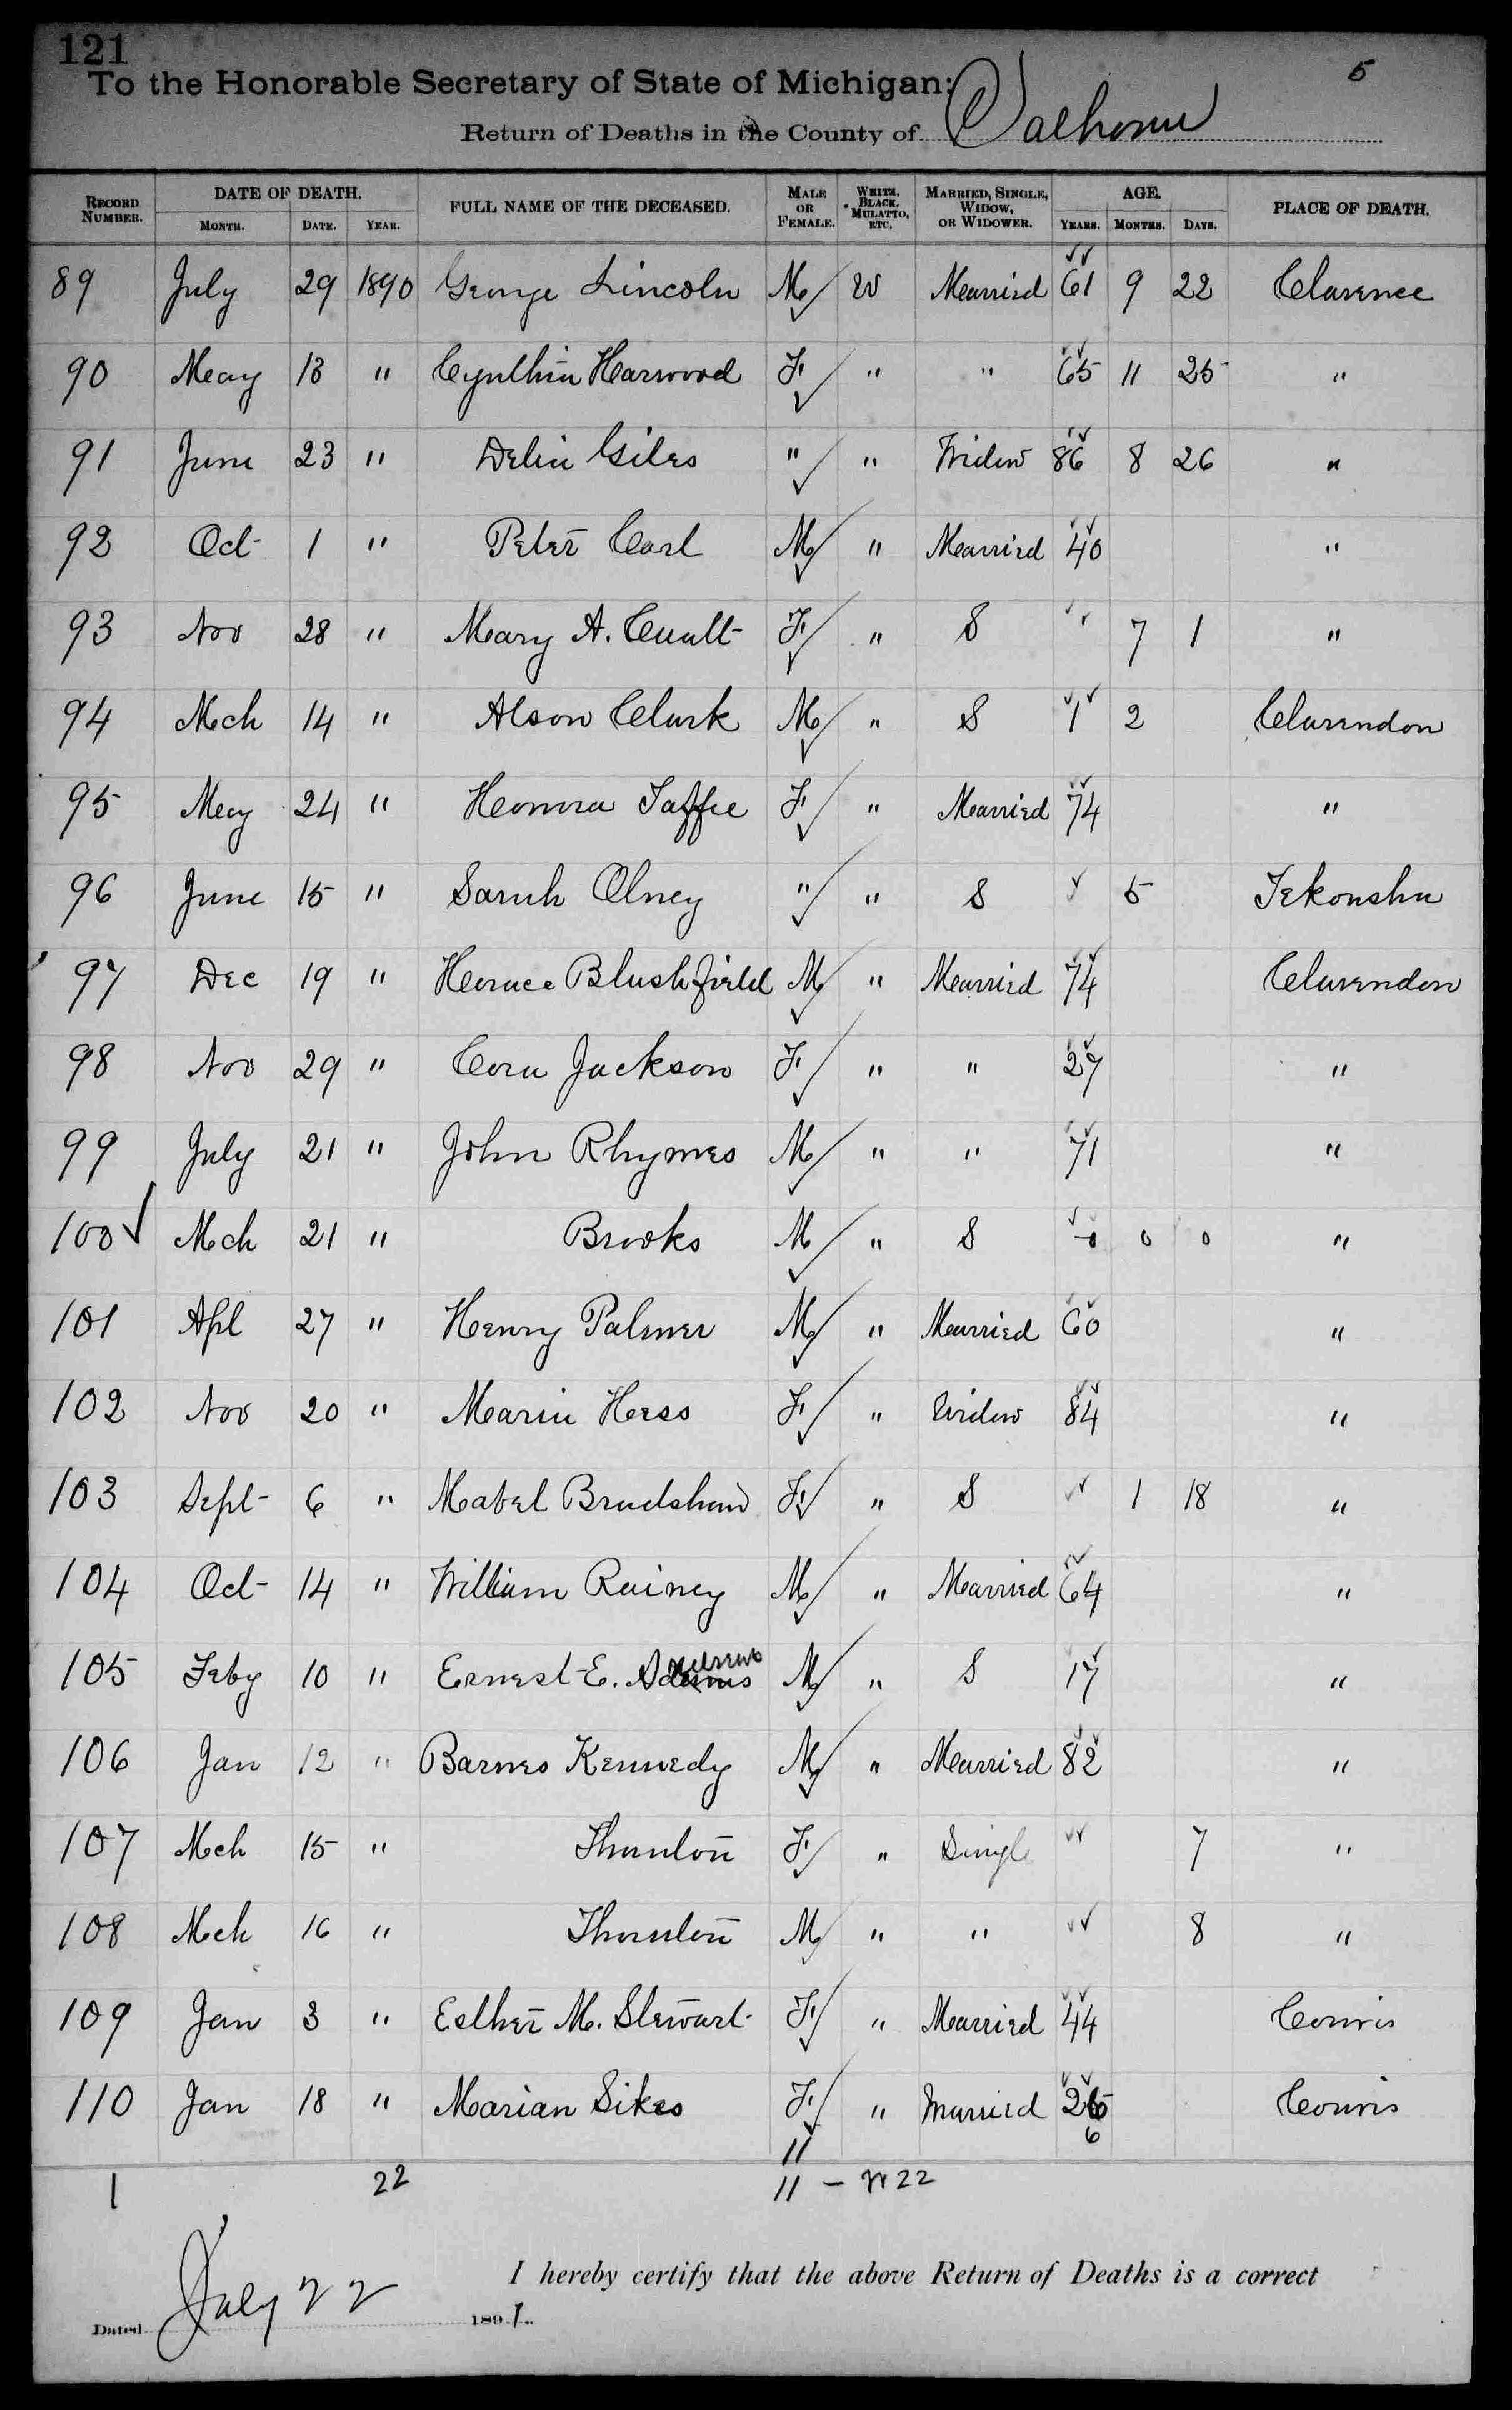 121
To the Honorable Secretary of State of Michigan: 5
Return of Deaths in the County of Calhoun
RECORD NUMBER. DATE OF DEATH. MONTH. DATE. YEAR. FULL NAME OF THE DECEASED. MALE OR FEMALE. WHITE, BLACK, MULATTO, ETC. MARRIED, SINGLE, WIDOW, OR WIDOWER. AGE. YEARS. MONTHS. DAYS. PLACE OF DEATH.
89 July 29 1890 George Lincoln M W Married 61 9 22 Clarence
90 May 13 " Cynthia Harwood F " " 65 11 25 "
91 June 23 " Delia Giles " " Widow 86 8 26 "
92 Oct 1 " Peter Carl M " Married 40 "
93 Nov 28 " Mary A. F " S 7 1 "
94 Mch 14 " Alson Clark M " S 1 2 Clarendon
95 May 24 " Honora Taffee F " Married 74 "
96 June 15 " Sarah Olney " " S 5 Tekonsha
97 Dec 19 " Horace Blushfield M " Married 74 Clarendon
98 Nov 29 " Cora Jackson F " " 27 "
99 July 21 " John Rhymes M " " 71 "
100 Mch 21 " Brooks M " S 0 0 0 "
101 Apl 27 " Henry Palmer M " Married 60 "
102 Nov 20 " Maria Hess F " Widow 84 "
103 Sept 6 " Mabel Bradshaw F " S 1 18 "
104 Oct 14 " William Rainey M " Married 64 "
105 Feby 10 " Ernest E. M " S 17 "
106 Jan 12 " Barnes Kennedy M " Married 82 "
107 Mch 15 " Thornton F " Single 7 "
108 Mch 16 " Thornton M " " 8 "
109 Jan 3 " Esther M. Stewart F " Married 44 Convis
110 Jan 18 " Marian Sikes F " Married 26 Convis
11 6
1 22 11 - W 22
I hereby certify that the above Return of Deaths is a correct
Dated July 22 1891.